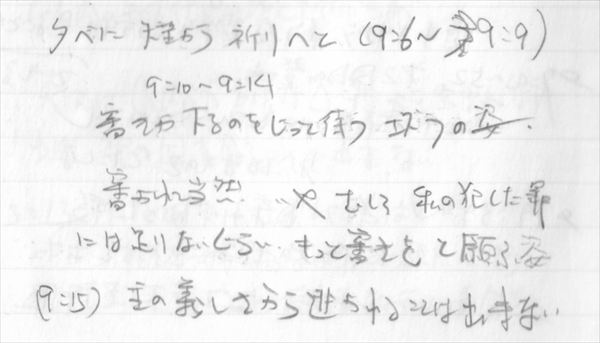 夕べに 立ち 祈りへと (9:6～9:9)
9:10～9:14
審きが下るのをじっと待つエズラの姿.
審かれ当然……や むしろ 私の犯した罪
には足りないくらい もっと審きを と願う姿
(9:15) 主の義しさから逃られることは出来ない